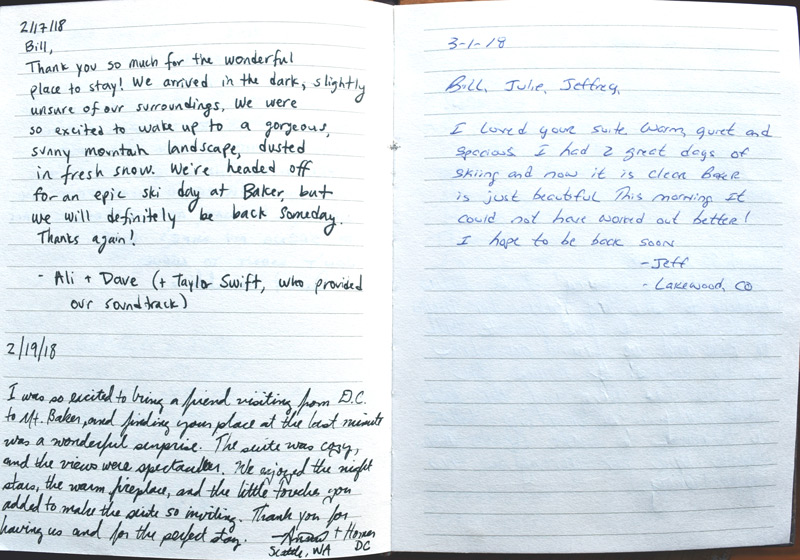 2/17/18
Bill,
Thank you so much for the wonderful
place to stay! We arrived in the dark, slightly
unsure of our surroundings. We were
so excited to wake up to a gorgeous,
sunny mountain landscape, dusted
in fresh snow. We're headed off
for an epic ski day at Baker, but
we will definitely be back someday.
Thanks again!
- Ali + Dave (+ Taylor Swift, who provided
our soundtrack)
2/19/18
I was so excited to bring a friend visiting from D.C.
to Mt. Baker, and finding your place at the last minute
was a wonderful surprise. The suite was cozy,
and the views were spectacular. We enjoyed the night
stars, the warm fireplace, and the little touches you
added to make the suite so inviting. Thank you for
having us and for the perfect stay. + 
Seattle, WA DC
3-1-18
Bill, Julie, Jeffrey,
I loved your suite. Warm, quiet and
spacious. I had 2 great days of
skiing and now it is clear Baker
is just beautiful This morning It
could not have worked out better!
I hope to be back soon
- Jeff
- Lakewood, CO